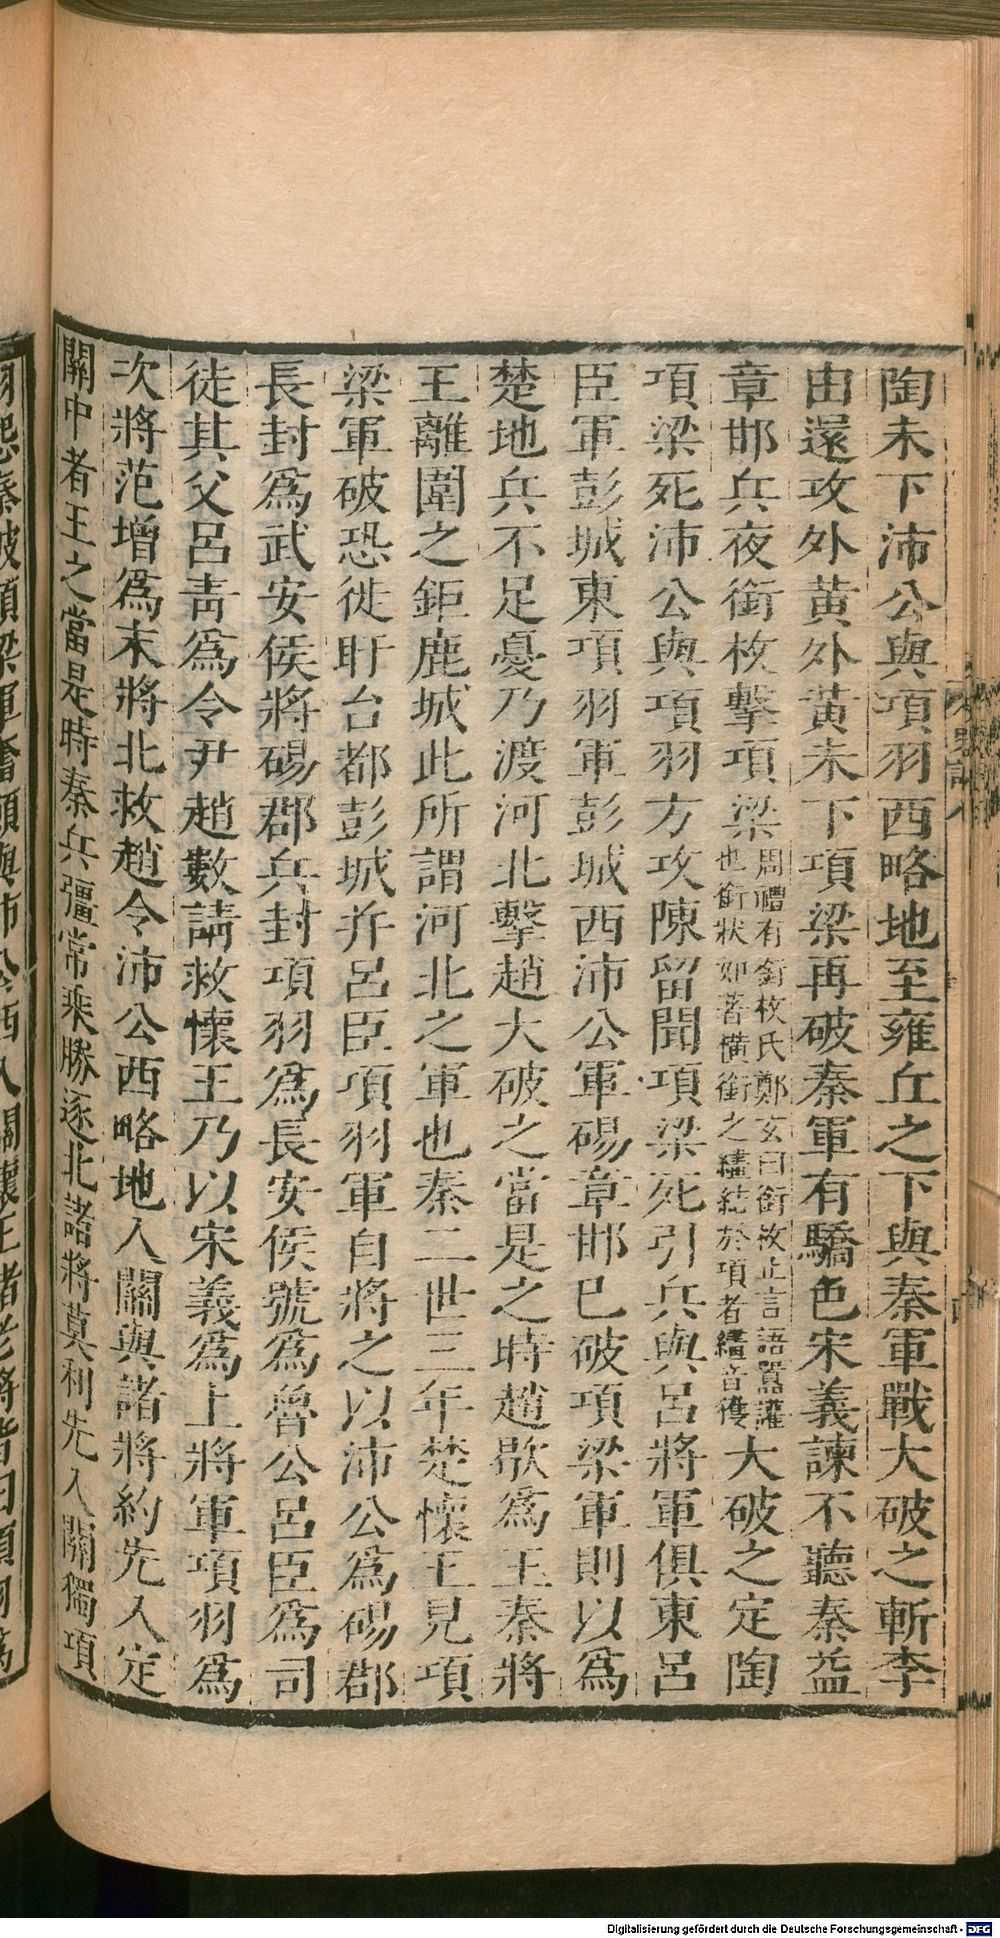 陶未下沛公與項羽西略地至雍丘之下與秦軍戰大破之斬李
由還攻外黃外黃未下項梁再破秦軍有驕色宋義諫不聽秦益
章邯兵夜銜枚擊項梁
周禮有銜枚氏鄭玄曰銜枚止言語嚻讙
也銜狀如箸橫銜之繣結於項者繣音獲
大破之定陶
項梁死沛公與項羽方攻陳留聞項梁死引兵與呂將軍俱東呂
臣軍彭城東項羽軍彭城西沛公軍碭章邯巳破項梁軍則以為
楚地兵不足憂乃渡河北擊趙大破之當是之時趙歇為王秦將
王離圍之鉅鹿城此所謂河北之軍也秦二世三年楚懷王見項
梁軍破恐徙盱台都彭城并呂臣項羽軍自將之以沛公為碭郡
長封為武安侯將碭郡兵封項羽為長安侯號為魯公呂臣為司
徒其父呂青為令尹趙數請救懷王乃以宋義為上將軍項羽為
次將范增為末將北救趙令沛公西略地入關與諸將約先入定
關中者王之當是時秦兵彊常乘勝逐北諸將莫利先入關獨項
破項梁軍奮願與沛公西入關懷王諸老將皆曰項羽為
Digitalisierung gefördert durch die Deutsche Forschungsgemeinschaft - DFG